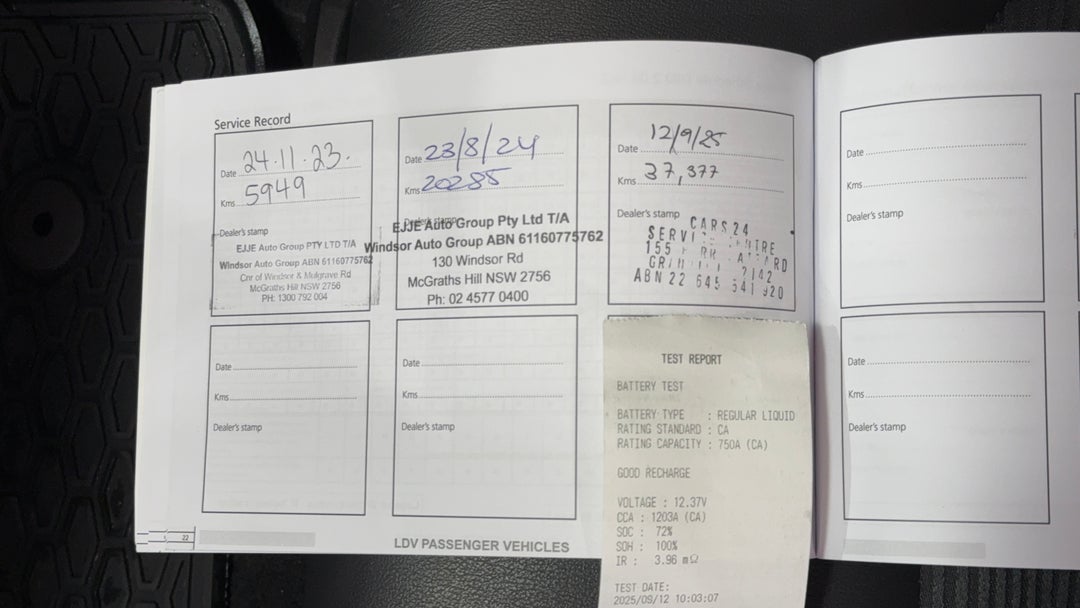 Service Record
Date 24.11.23.
Kms 5949
Dealer's stamp
EJJE Auto Group PTY LTD T/A
Windsor Auto Group ABN 61160775762
Cnr of Windsor & Mulgrave Rd
McGraths Hill NSW 2756
PH: 1300 792 004
Date 23/8/24
Kms 20285
Dealer's stamp
EJJE Auto Group Pty Ltd T/A
Windsor Auto Group ABN 61160775762
130 Windsor Rd
McGraths Hill NSW 2756
Ph: 02 4577 0400
Date 12/9/25
Kms 37,377
Dealer's stamp
CARS24
155
2142
ABN 22 645 541 920
Date
Kms
Dealer's stamp
Date
Kms
Dealer's stamp
TEST REPORT
BATTERY TEST
BATTERY TYPE : REGULAR LIQUID
RATING STANDARD : CA
RATING CAPACITY : 750A (CA)
GOOD RECHARGE
VOLTAGE : 12.37V
CCA : 1203A (CA)
SOC : 72%
SOH : 100%
IR : 3.96 mΩ
TEST DATE:
2025/09/12 10:03:07
22
LDV PASSENGER VEHICLES
Date
Kms
Dealer's stamp
Date
Kms
Dealer's stamp